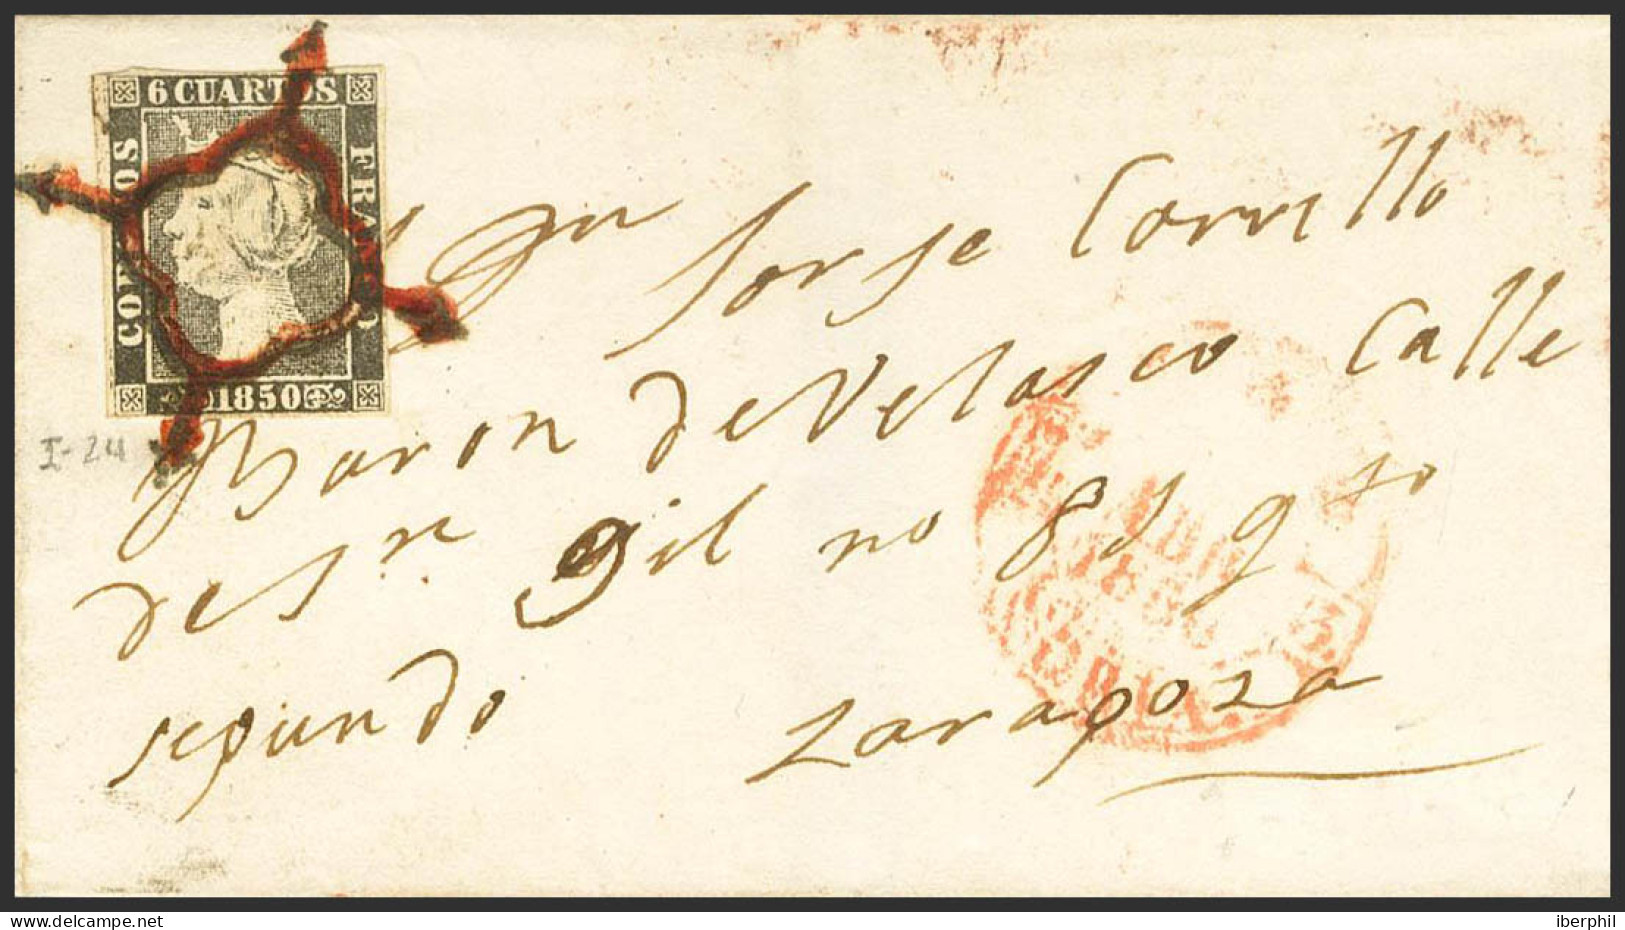 6 CUARTOS
CORREOS
FRANCO
1850
I-24
Jorge Cornello
Baron de Velasco Calle
de Sn Gil no 8 d qto
segundo Zaragoza
www.delcampe.net
iberphil